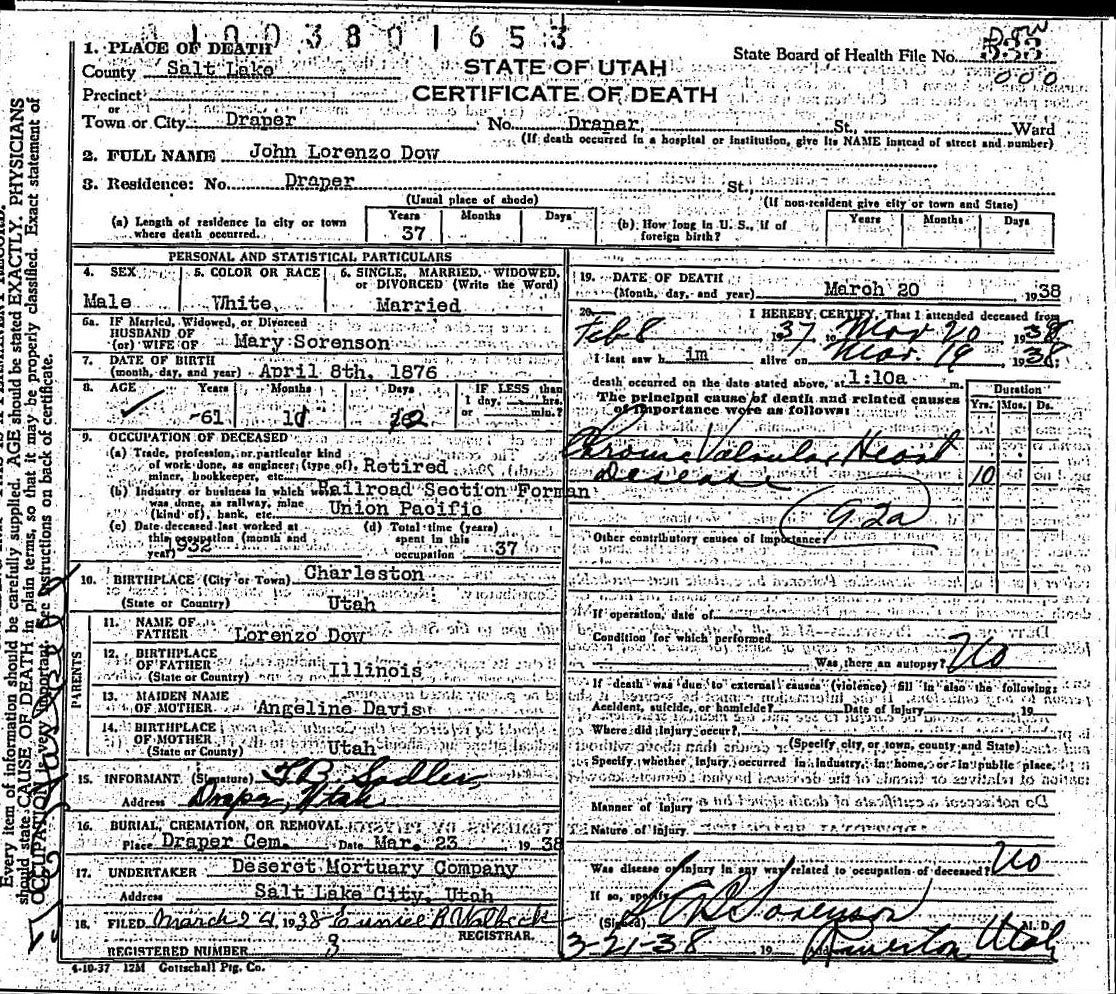 1 1 0 0 3 8 0 1 6 5 3
1. PLACE OF DEATH
County Salt Lake
Precinct
or
Town or City Draper
STATE OF UTAH
CERTIFICATE OF DEATH
State Board of Health File No. 533
Dow
000
No. Draper, St., Ward
(If death occurred in a hospital or institution, give its NAME instead of street and number)
2. FULL NAME John Lorenzo Dow
3. Residence: No. Draper St.,
(Usual place of abode)
(If non-resident give city or town and State)
(a) Length of residence in city or town where death occurred.
Years Months Days
37
(b) How long in U. S., if of foreign birth?
Years Months Days
PERSONAL AND STATISTICAL PARTICULARS
4. SEX
Male
5. COLOR OR RACE
White
6. SINGLE, MARRIED, WIDOWED, or DIVORCED (Write the Word)
Married
6a. IF Married, Widowed, or Divorced
HUSBAND OF
(or) WIFE OF Mary Sorenson
7. DATE OF BIRTH
(month, day, and year) April 8th, 1876
8. AGE Years Months Days IF LESS than
1 day, hrs.
or min.?
61
9. OCCUPATION OF DECEASED
(a) Trade, profession, or particular kind
of work done, as engineer, (type of),
miner, bookkeeper, etc. Retired
(b) Industry or business in which work
was done, as railway, mine
(kind of), bank, etc.
Railroad Section Forman
Union Pacific
(c) Date deceased last worked at
this occupation (month and
year) 1932
(d) Total time (years)
spent in this
occupation 37
10. BIRTHPLACE (City or Town) Charleston
(State or Country) Utah
PARENTS
11. NAME OF
FATHER Lorenzo Dow
12. BIRTHPLACE
OF FATHER
(State or Country) Illinois
13. MAIDEN NAME
OF MOTHER Angeline Davis
14. BIRTHPLACE
OF MOTHER
(State or County) Utah
15. INFORMANT (Signature) T B Sadler
Address Draper, Utah
16. BURIAL, CREMATION, OR REMOVAL
Place Draper Cem. Date Mar. 23 1938
17. UNDERTAKER Deseret Mortuary Company
Address Salt Lake City, Utah
18. FILED March 24 1938 Eunice R
REGISTRAR.
REGISTERED NUMBER
4-10-37 12M Gottschall Ptg. Co.
19. DATE OF DEATH
(Month, day, and year) March 20 1938
20. I HEREBY CERTIFY, That I attended deceased from
Feb 8 1937 to Mar 20 1938
I last saw h im alive on Mar 19 1938;
death occurred on the date stated above, at 1:10a m.
The principal cause of death and related causes
of importance were as follows:
Duration
Yrs. Mos. Ds.
Chronic Valvular Heart
Disease 10
92a
Other contributory causes of importance:
If operation, date of
Condition for which performed
Was there an autopsy? No
If death was due to external causes (violence) fill in also the following:
Accident, suicide, or homicide? Date of Injury 19
Where did injury occur?
(Specify city, or town, county and State)
Specify whether injury occurred in industry, in home, or in public place,
Manner of Injury
Nature of Injury
Was disease or injury in any way related to occupation of deceased? No
If so, specify
(Signed) Sorenson M. D.
3-21-38 19 Riverton Utah
Every item of information should be carefully supplied. AGE should be stated EXACTLY. PHYSICIANS
should state CAUSE OF DEATH in plain terms, so that it may be properly classified. Exact statement of
OCCUPATION is very important. See instructions on back of certificate.